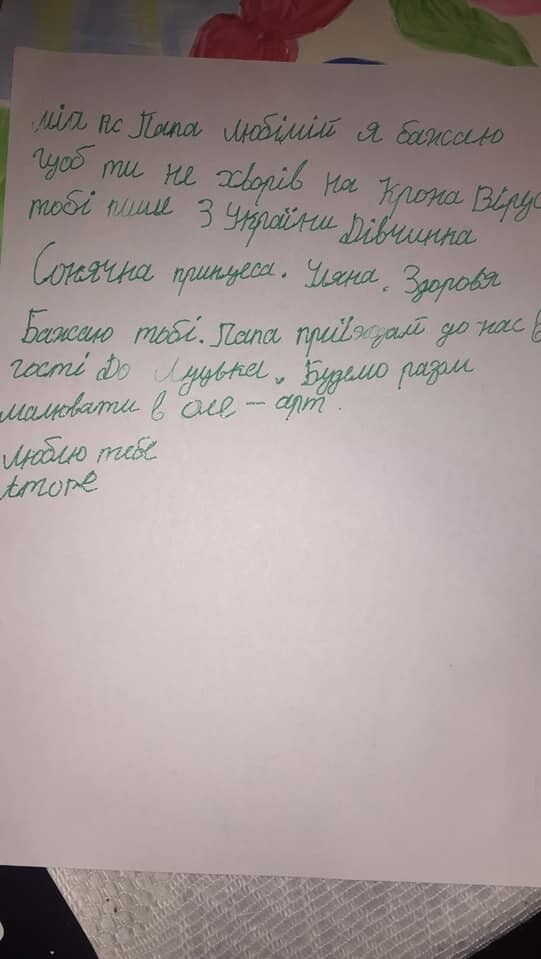 мій Папа любімій я бажаю
щоб ти не хворів на Крона Вірус
тобі пише З України Дівчинна
Сонячна принцеса. Уляна. Здоровя
Бажаю тобі. Папа приїздай до нас в
гості До Луцька. Будемо разм
малювати в оле - арт.
Люблю тебе
Аторе